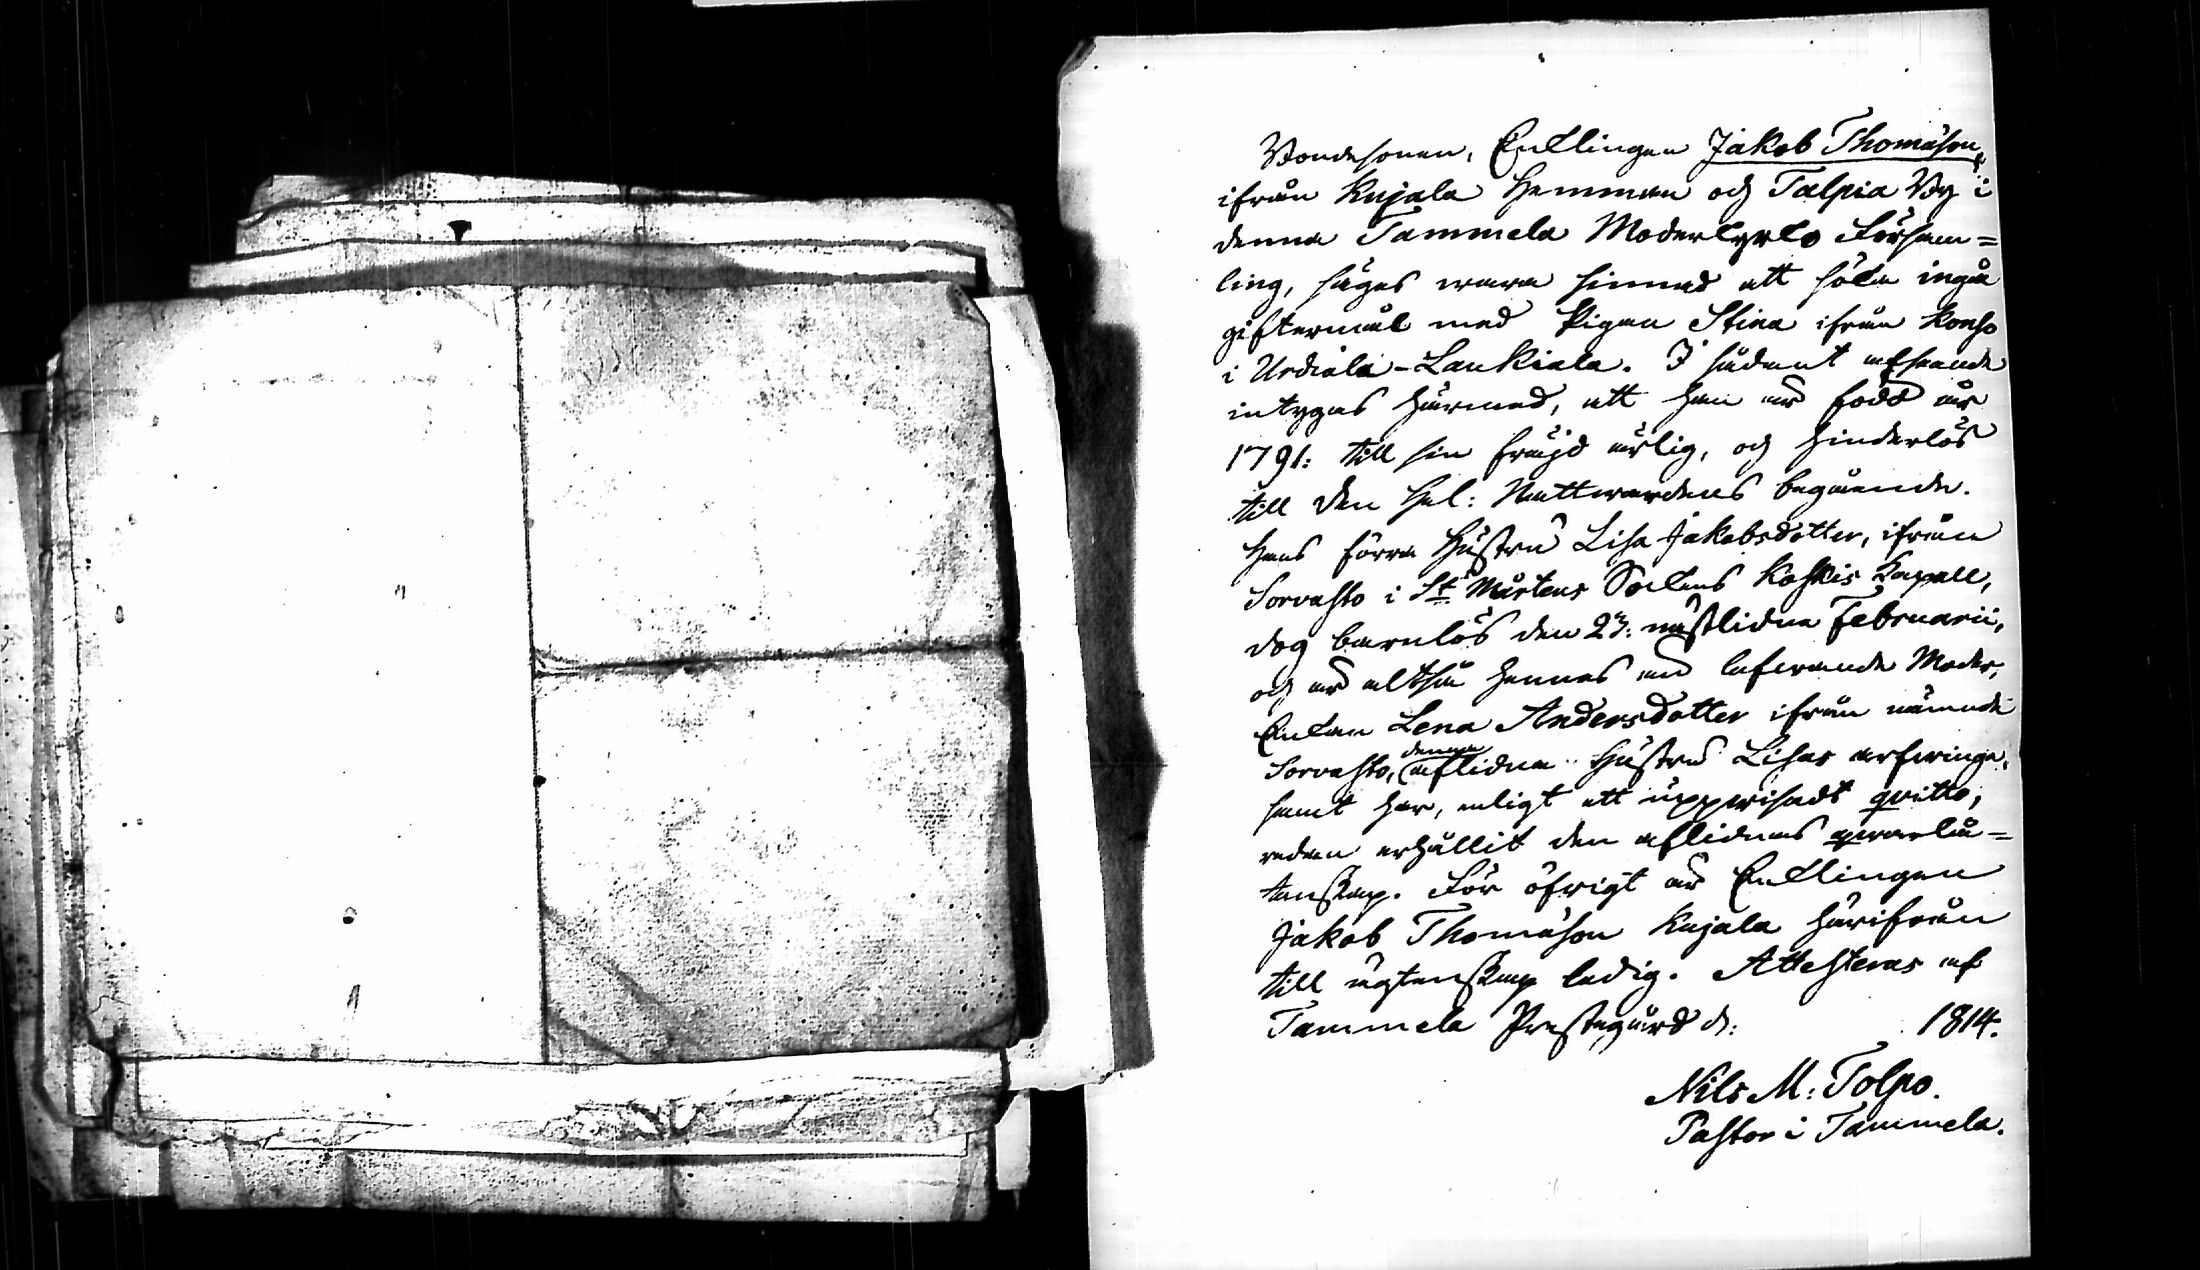 Bondesonen, Enklingen Jakob Thomäson,
ifrån Kujala Hemman och Talpia By i
denna Tammela Moderkyrko Försam=
ling, säges wara sinnad att söka ingå
giftermål med Pigan Stina ifrån Konho
i Urdiala-Laukiala. I sådant afseende
intygas härmed, att han är född år
1791: till sin fräjd ärlig, och hinderlös
till den Hel: Nattwardens begående.
Hans förra Hustru Lisa Jakobsdotter, ifrån
Sorvasto i St Mårtens Sockens Koskis Kapell,
dog barnlös den 23: nästlidne Februarii,
och är altså hennes än lefwande Moder,
Enkan Lena Andersdotter ifrån nämnde
Sorvasto, denna aflidna Hustru Lisas arfwinge,
samt har, enligt ett uppwisadt qvitto,
redan erhållit den aflidnas qwarlå=
tenskap. För öfrigt är Enklingen
Jakob Thomäson Kujala härifrån
till ägtenskap ledig. Attesteras af
Tammela Prestegård d: 1814.
Nils M: Tolpo.
Pastor i Tammela.